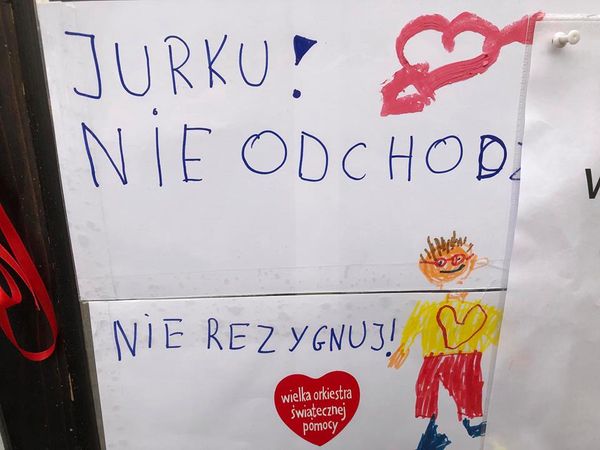 JURKU!
NIE ODCHODŹ
NIE REZYGNUJ!
wielka orkiestra
świątecznej
pomocy